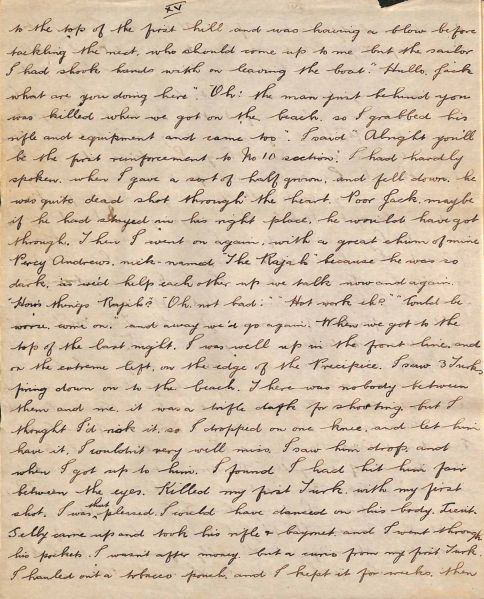 XV
to the top of the first hill and was having a blow before
tackling the next, who should come up to me but the sailor
I had shook hands with on leaving the boat. "Hullo, Jack
what are you doing here". "Oh! the man just behind you
was killed when we got on the beach, so I grabbed his
rifle and equipment and came too". I said "Alright you'll
be the first reinforcement to No 10 section". I had hardly
spoken, when I gave a sort of half groan, and fell down, he
was quite dead shot through the heart. Poor Jack, maybe
if he had stayed in his right place, he would have got
through. Then I went on again, with a great chum of mine
Percy Andrews, nick-named "The Rajah" because he was so
dark, we'd help each other up we talk now and again.
"How's things Rajah?" "Oh, not bad." "Hot work eh?" "Could be
worse, come on," and away we'd go again. When we got to the
top of the last night, I was well up in the front line, and
on the extreme left, on the edge of the Precipice. I saw 3 Turks
firing down on to the beach. There was nobody between
them and me, it was a trifle dark for shooting, but I
thought I'd risk it, so I dropped on one knee, and let him
have it, I wouldn't very well miss. I saw him drop, and
when I got up to him, I found I had hit him fair
between the eyes. Killed my first Turk, with my first
shot. I was that pleased, I could have danced on his body. Lieut.
Selby came up and took his rifle & bayonet, and I went through
his pockets. I wasn't after money, but a curio from my first Turk.
I hauled out a tobacco pouch, and I kept it for weeks, then